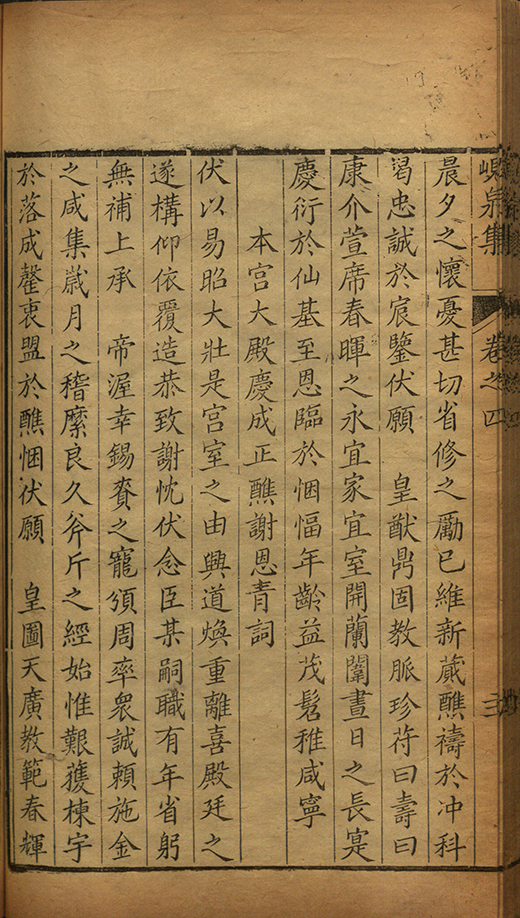 峴泉集 卷之四 三
晨夕之懷憂甚切省修之勵已維新蕆醮禱於冲科
渴忠誠於宸鑒伏願 皇猷鼎固教脈珍苻曰壽曰
康介萱席春暉之永宜家宜室開蘭闈晝日之長寔
慶衍於仙基至恩臨於悃愊年齡益茂髫稚咸寧
本宮大殿慶成正醮謝恩青詞
伏以易昭大壯是宮室之由興道煥重離喜殿廷之
遂構仰依覆造恭致謝忱伏念臣某嗣職有年省躬
無補上承 帝渥幸錫賚之寵頒周率衆誠賴施金
之咸集歲月之稽縻良久斧斤之經始惟艱獲棟宇
於落成罄衷盟於醮悃伏願 皇圖天廣教範春輝